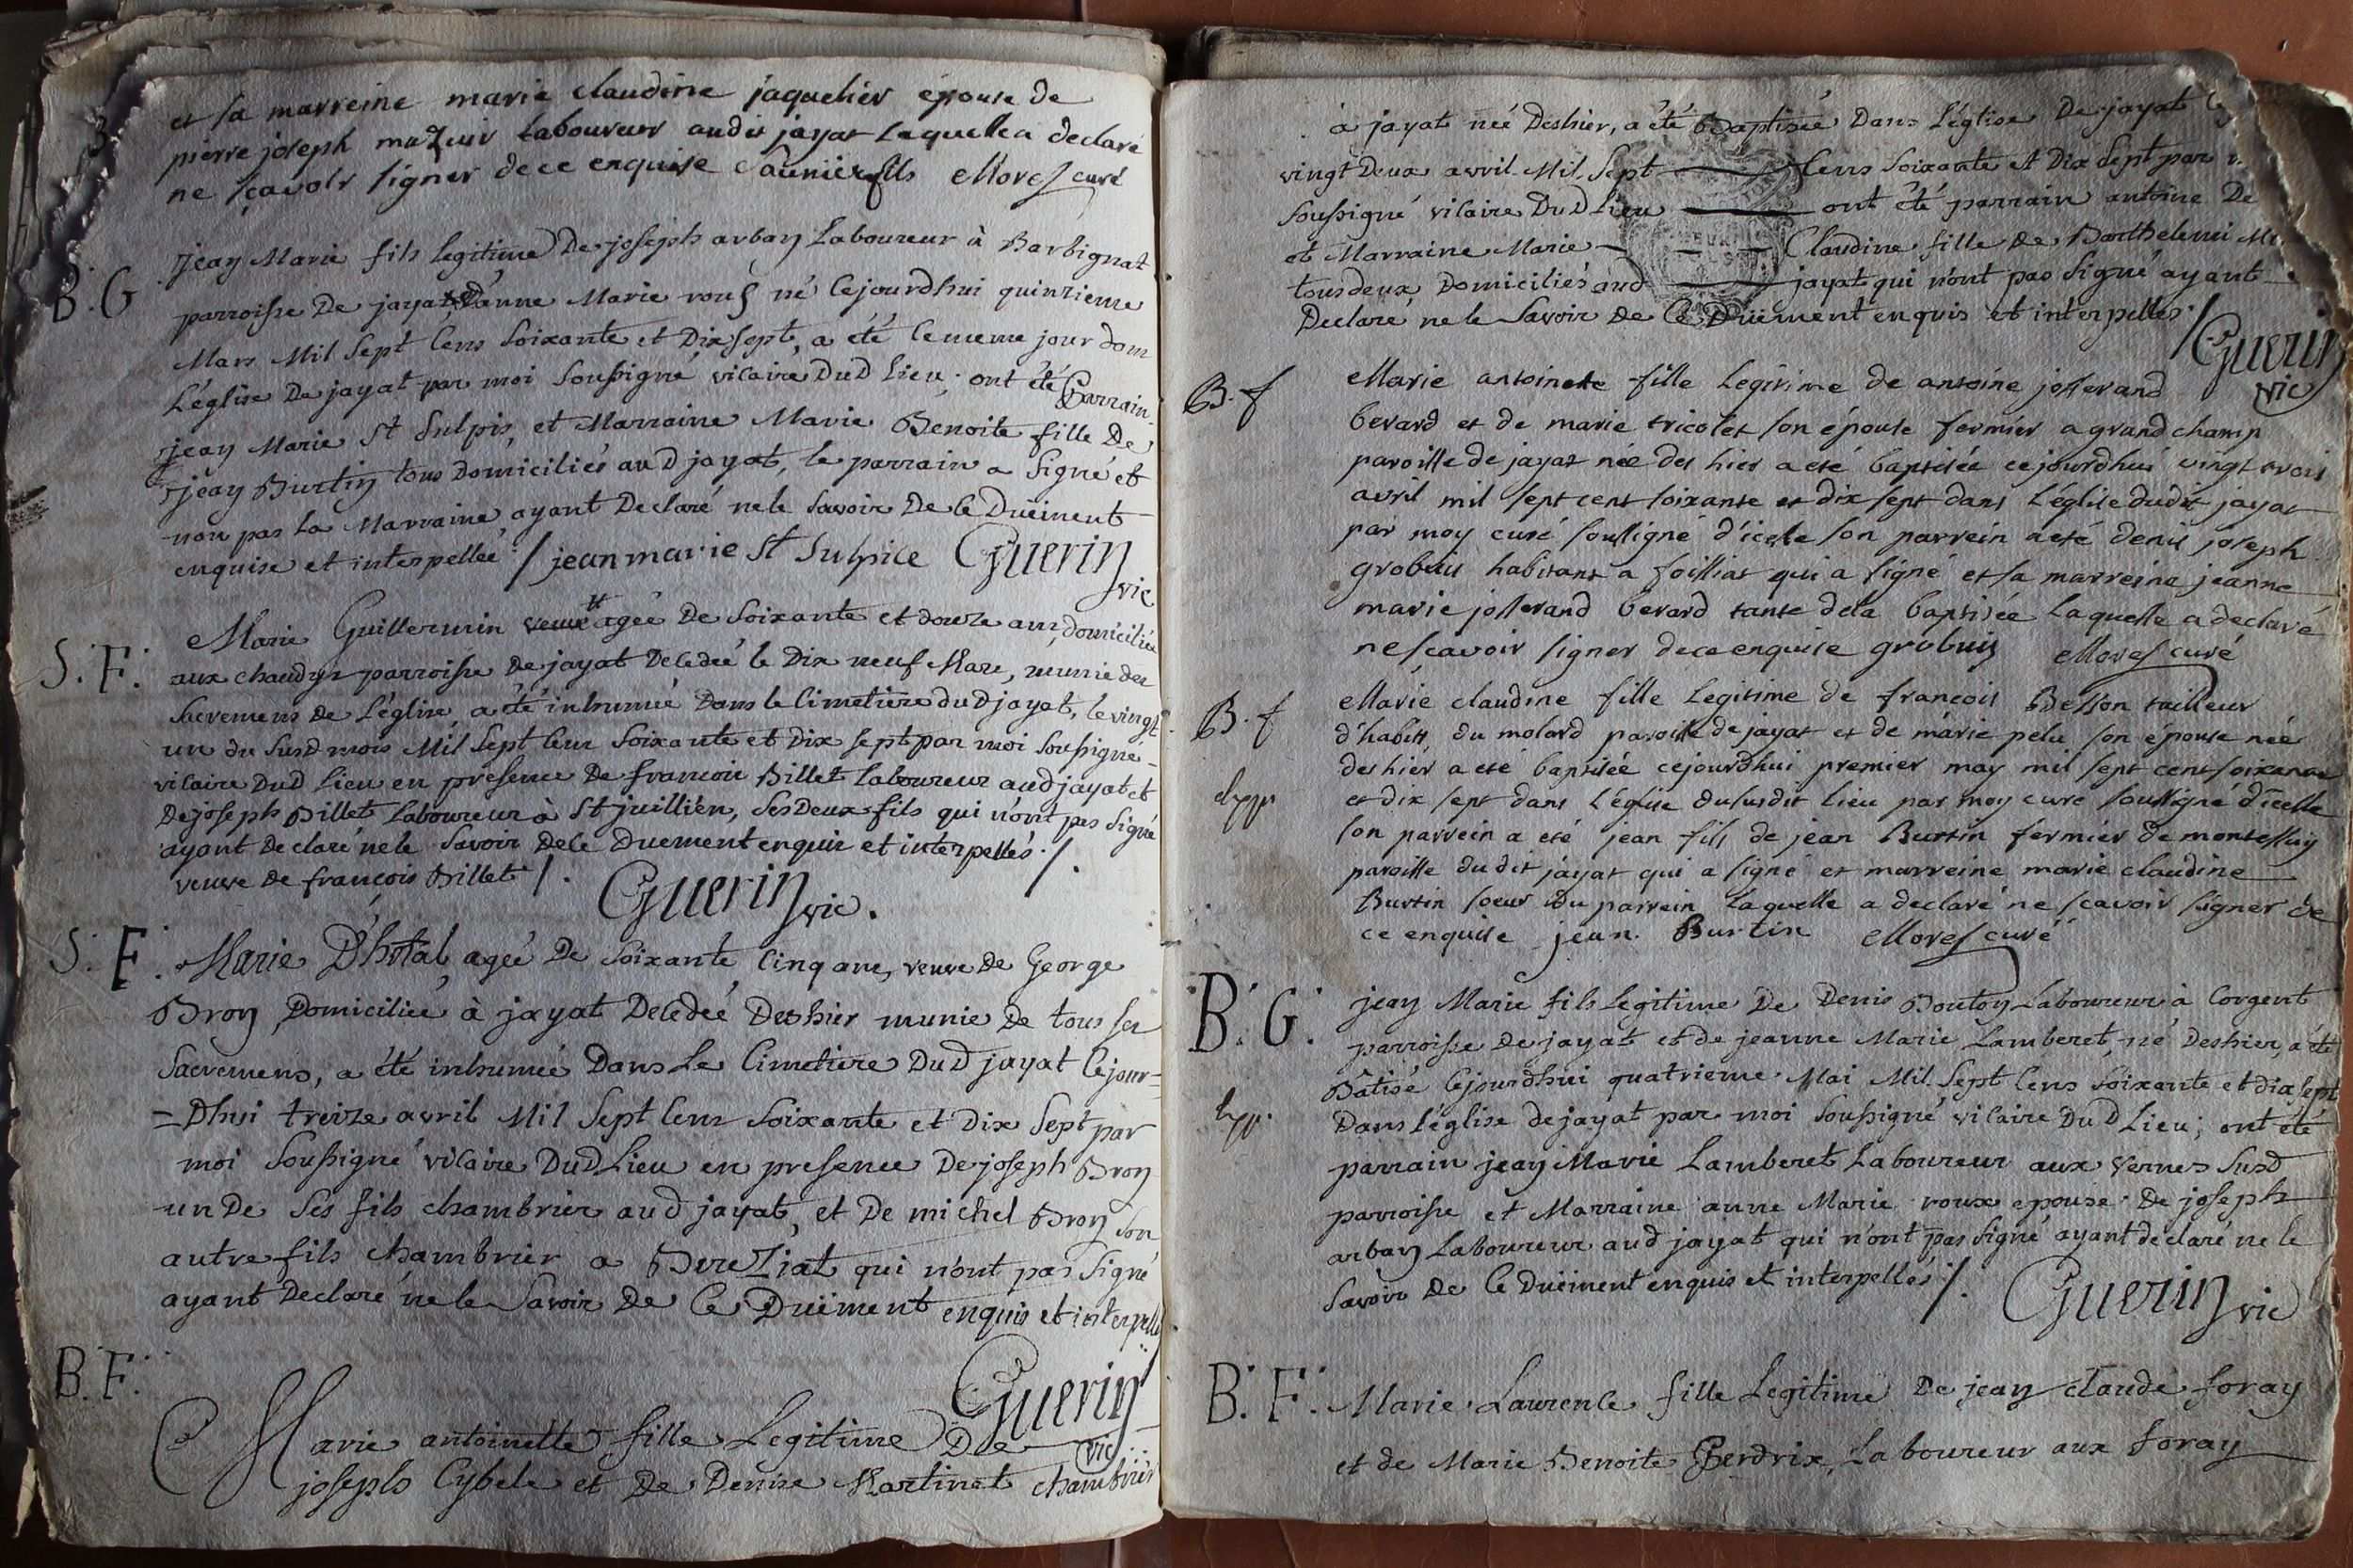 3
et sa marreine marie claudine jaquelier épouse de
pierre joseph mazuir laboureur audit jayat laquelle a declaré
ne sçavoir signer de ce enquise Saunier fils Morel curé
B. G
jean Marie fils legitime De joseph arban Laboureur à Barbignat
parroisse De jayat & D'anne Marie roux né Cejourdhui quinzieme
Mars Mil Sept Cens Soixante et Dix sept, a été le meme jour dans
L'église De jayat par moi Soussigné vicaire Dud Lieu. ont été Parrain
jean Marie St Sulpis, et Marraine Marie Benoite fille De
jean Burtin tous Domiciliés aud jayat, le parrain a Signé et
non pas La Marraine ayant Declaré ne le Savoir De Ce Duëment
enquise et interpellée ./ jean marie St Sulpice Guerin
vic
S. F.
Marie Guillermin veuve agée De Soixante et douze ans, domiciliée
aux chaudys parroisse De jayat Decedée le Dix neuf Mars, munie des
Sacremens De L'église a été inhumée Dans le Cimetiere dud jayat, le vingt
un du Susd mois Mil Sept Cens Soixante et Dix sept par moi Soussigné
vicaire Dud Lieu en présence De francois Billet Laboureur aud jayat et
De joseph Billet Laboureur à St juillien, Ses Deux fils qui n'ont pas Signé
ayant declaré ne le Savoir de Ce Duement enquis et interpellés ./.
veuve de françois Billet /. Guerin vic.
S. F.
Marie D'hôtal agée De Soixante Cinq ans, veuve De George
Bron Domiciliée à jayat Decedée Deshier munie De tous ses
Sacremens, a été inhumée Dans Le Cimetiere Dud jayat Cejour=
=Dhui treize avril Mil Sept Cens Soixante et Dix Sept par
moi Soussigné vicaire Dud Lieu en presence De joseph Bron
un De Ses fils chambrier aud jayat, et De michel Bron Son
autre fils chambrier a BereZiat qui n'ont pas Signé
ayant Declaré ne le Savoir De Ce Duëment enquis et interpellés
Guerin
vic
B. F.
Marie antoinette fille Legitime De
joseph Cybele et De Denise Martinet chambrier
à jayat née Deshier, a été Baptisée Dans L'église De jayat
vingt Deux avril Mil Sept Cens Soixante et Dix Sept par
Soussigné vicaire Dud Lieu ont été parrain antoine De
et Marraine Marie Claudine fille De Barthelemi
tous deux Domiciliés aud jayat qui n'ont pas Signé ayant
Declaré ne le Savoir De Ce Duëment enquis et interpellés ./
Guerin
vic
B. f
Marie antoinete fille legitime de antoine josserand
berard et de marie tricolet son épouse fermier a grand champ
paroisse de jayat née des hier a eté baptisée cejourdhui vingt trois
avril mil sept cent soixante et dix sept dans l'église dudit jayat
par moy curé soussigné d'icele son parrein a eté denis joseph
grobuis habitant a foissiat qui a signé et sa marreine jeanne
marie josserand berard tante de la baptisée laquelle a declaré
ne sçavoir signer de ce enquise grobuis Morel curé
B. f
Marie claudine fille legitime de francois Besson tailleur
d'habits, du molard paroisse de jayat et de marie pelu son épouse née
des hier a eté baptisée cejourdhui premier may mil sept cent soixante
et dix sept dans l'église dususdit lieu par moy curé soussigné d'icelle
son parrein a eté jean fils de jean Burtin fermier de montessuy
paroisse dudit jayat qui a signé et marreine marie claudine
Burtin soeur du parrein laquelle a declaré ne sçavoir signer de
ce enquise jean Burtin Morel curé
B. G.
jean Marie fils legitime De Denis Bouton Laboureur à Corgent
parroisse De jayat et de jeanne Marie Lamberet, né Deshier, a été
Bâtisé Cejourdhui quatrieme Mai Mil Sept Cens Soixante et dix sept
Dans l'église de jayat par moi Soussigné vicaire Dud Lieu; ont été
parrain jean Marie Lamberet Laboureur aux vernes Susd
parroisse et Marraine anne Marie roux epouse De joseph
arban Laboureur aud jayat qui n'ont pas Signé ayant declaré ne le
Savoir De Ce Duëment enquis et interpellés ./. Guerin vic
B. F.
Marie Laurence fille Legitime De jean claude foray
et de Marie Benoite Perdrix, Laboureur aux foray